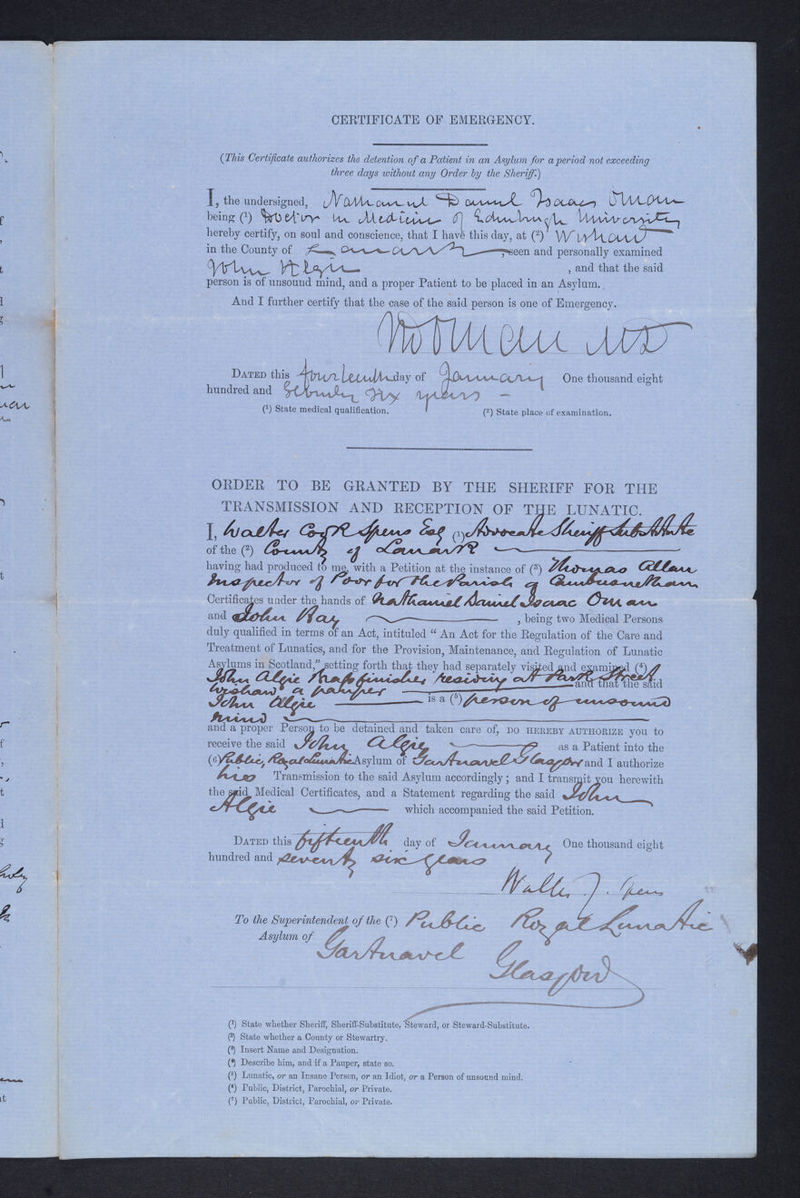 CERTIFICATE OF EMERGENCY.
(This Certificate authorizes the detention of a Patient in an Asylum for a period not exceeding
three days without any Order by the Sheriff.)
I, the undersigned, Nathaniel Daniel Isaac Oman
being (¹) Doctor in Medicine of Edinburgh University
hereby certify, on soul and conscience, that I have this day, at (²) Wishaw
in the County of Lanark, seen and personally examined
John Algie, and that the said
person is of unsound mind, and a proper Patient to be placed in an Asylum.
And I further certify that the case of the said person is one of Emergency.
Oman MD
DATED this fourteenth day of January One thousand eight
hundred and Seventy Six years
(¹) State medical qualification. (²) State place of examination.
ORDER TO BE GRANTED BY THE SHERIFF FOR THE
TRANSMISSION AND RECEPTION OF THE LUNATIC.
I, Walter Cook Spens Esq (¹) Advocate Sheriff Substitute
of the (²) County of Lanark
having had produced to me, with a Petition at the instance of (³) Thomas Allan
Inspector of Poor for the Parish of Cambusnethan
Certificates under the hands of Nathaniel Daniel Isaac Oman
and John Hay, being two Medical Persons
duly qualified in terms of an Act, intituled "An Act for the Regulation of the Care and
Treatment of Lunatics, and for the Provision, Maintenance, and Regulation of Lunatic
Asylums in Scotland," setting forth that they had separately visited and examined (⁴)
John Algie Brassfinisher residing at Park Street
Wishaw a pauper and that the said
John Algie is a (⁵) person of unsound
mind
and a proper Person to be detained and taken care of, DO HEREBY AUTHORIZE you to
receive the said John Algie as a Patient into the
(⁶) Public, Royal Lunatic Asylum of Gartnavel Glasgow and I authorize
his Transmission to the said Asylum accordingly; and I transmit you herewith
the said Medical Certificates, and a Statement regarding the said John
Algie which accompanied the said Petition.
DATED this fifteenth day of January One thousand eight
hundred and seventy six years
Walter C. Spens
To the Superintendent of the (⁷) Public Royal Lunatic
Asylum of Gartnavel Glasgow
(¹) State whether Sheriff, Sheriff-Substitute, Steward, or Steward-Substitute.
(²) State whether a County or Stewartry.
(³) Insert Name and Designation.
(⁴) Describe him, and if a Pauper, state so.
(⁵) Lunatic, or an Insane Person, or an Idiot, or a Person of unsound mind.
(⁶) Public, District, Parochial, or Private.
(⁷) Public, District, Parochial, or Private.